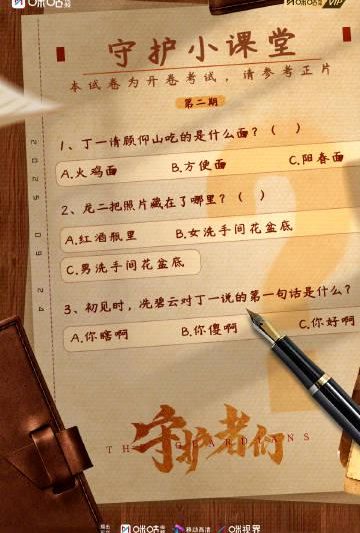 咪咕视频 咪咕视频 VIP
守护小课堂
本试卷为开卷考试，请参考正片
第二期
1、丁一请顾仰山吃的是什么面？（ ）
A.火鸡面 B.方便面 C.阳春面
2、龙二把照片藏在了哪里？（ ）
A.红酒瓶里 B.女洗手间花盆底
C.男洗手间花盆底
3、初见时，冼碧云对丁一说的第一句话是什么？
A.你瞎啊 B.你傻啊 C.你好啊
2025 09 24
守护者们
THE GUARDIANS
咪咕 移动高清 咪视界